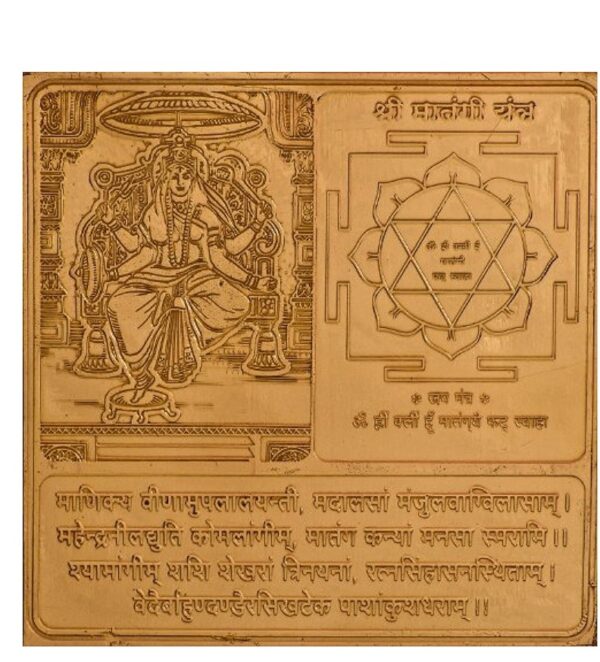 श्री मातंगी यंत्र
ॐ ह्रीं क्लीं हूँ
मातंग्यै
फट् स्वाहा
जप मंत्र
ॐ ह्रीं क्लीं हूँ मातंग्यै फट् स्वाहा
माणिक्य वीणामुपलालयन्ती, मदालसां मंजुलवाग्विलासाम् ।
महेन्द्रनीलद्युति कोमलांगीम्, मातंग कन्यां मनसा स्मरामि ।।
श्यामांगीम् शशि शेखरां त्रिनयनां, रत्नसिंहासनस्थिताम् ।
पाशांकुशधराम् ।।